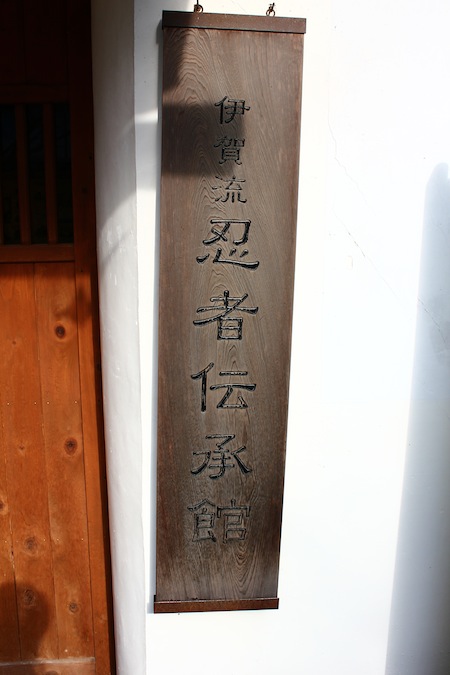 伊賀流忍者伝承館